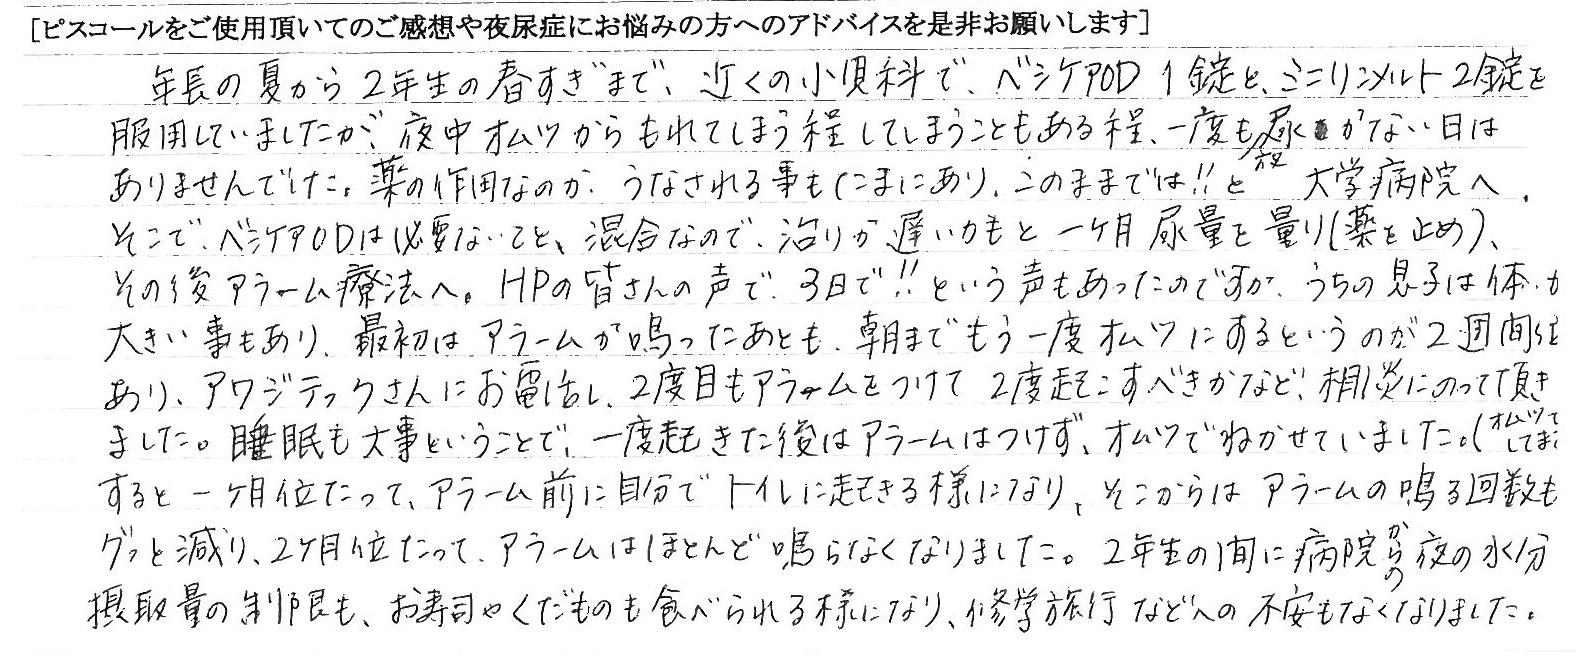 [ピスコールをご使用頂いてのご感想や夜尿症にお悩みの方へのアドバイスを是非お願いします]
年長の夏から2年生の春すぎまで、近くの小児科で、ベシケアOD 1錠と、ミニリンメルト2錠を
服用していましたが、夜中オムツからもれてしまう程してしまうこともある程、一度も尿がない日は
ありませんでした。薬の作用なのか、うなされる事もたまにあり、このままでは!!と 大学病院へ、
そこで、ベシケアODは必要ないこと、混合なので、治りが遅いかもと一ヶ月尿量を量り(薬を止め)、
その後アラーム療法へ。HPの皆さんの声で、3日で!!という声もあったのですが、うちの息子は体が
大きい事もあり、最初はアラームが鳴ったあとも、朝までもう一度オムツにするというのが2週間位
あり、アワジテックさんにお電話し、2度目もアラームをつけて2度起こすべきかなど、相談にのって頂き
ました。睡眠も大事ということで、一度起きた後はアラームはつけず、オムツでねかせていました。(オムツで
してま
すると一ヶ月位たって、アラーム前に自分でトイレに起きる様になり、そこからはアラームの鳴る回数も
グッと減り、2ヶ月位たって、アラームはほとんど鳴らなくなりました。2年生の間に病院からの夜の水分
摂取量の制限も、お寿司やくだものも食べられる様になり、修学旅行などへの不安もなくなりました。